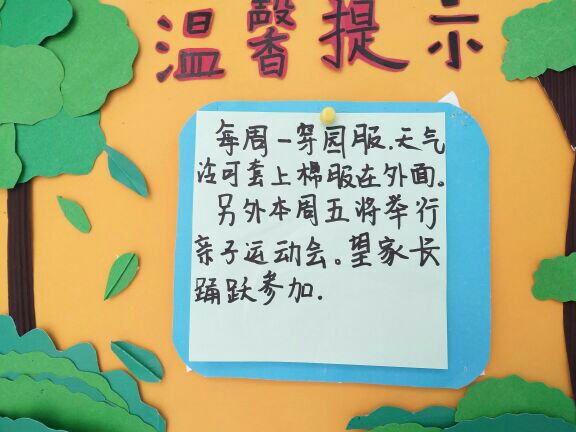 温馨提示
每周一穿园服.天气
冷可套上棉服在外面。
另外本周五将举行
亲子运动会。望家长
踊跃参加.